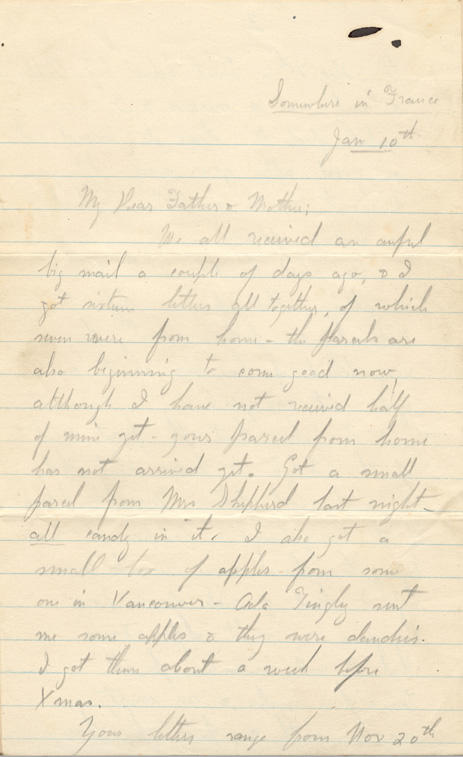 Somewhere in France
Jan 10th
My Dear Father & Mother;
We all received an awful
big mail a couple of days ago, & I
got sixteen letters all together, of which
seven were from home - the parcels are
also beginning to come good now,
although I have not received half
of mine yet - yours parcel from home
has not arrived yet. Got a small
parcel from Mrs Shepherd last night -
all candy in it. I also got a
small box of apples from some
one in Vancouver - Tingly sent
me some apples & they were dandies.
I got them about a week before
Xmas.
Your letters range from Nov 20th